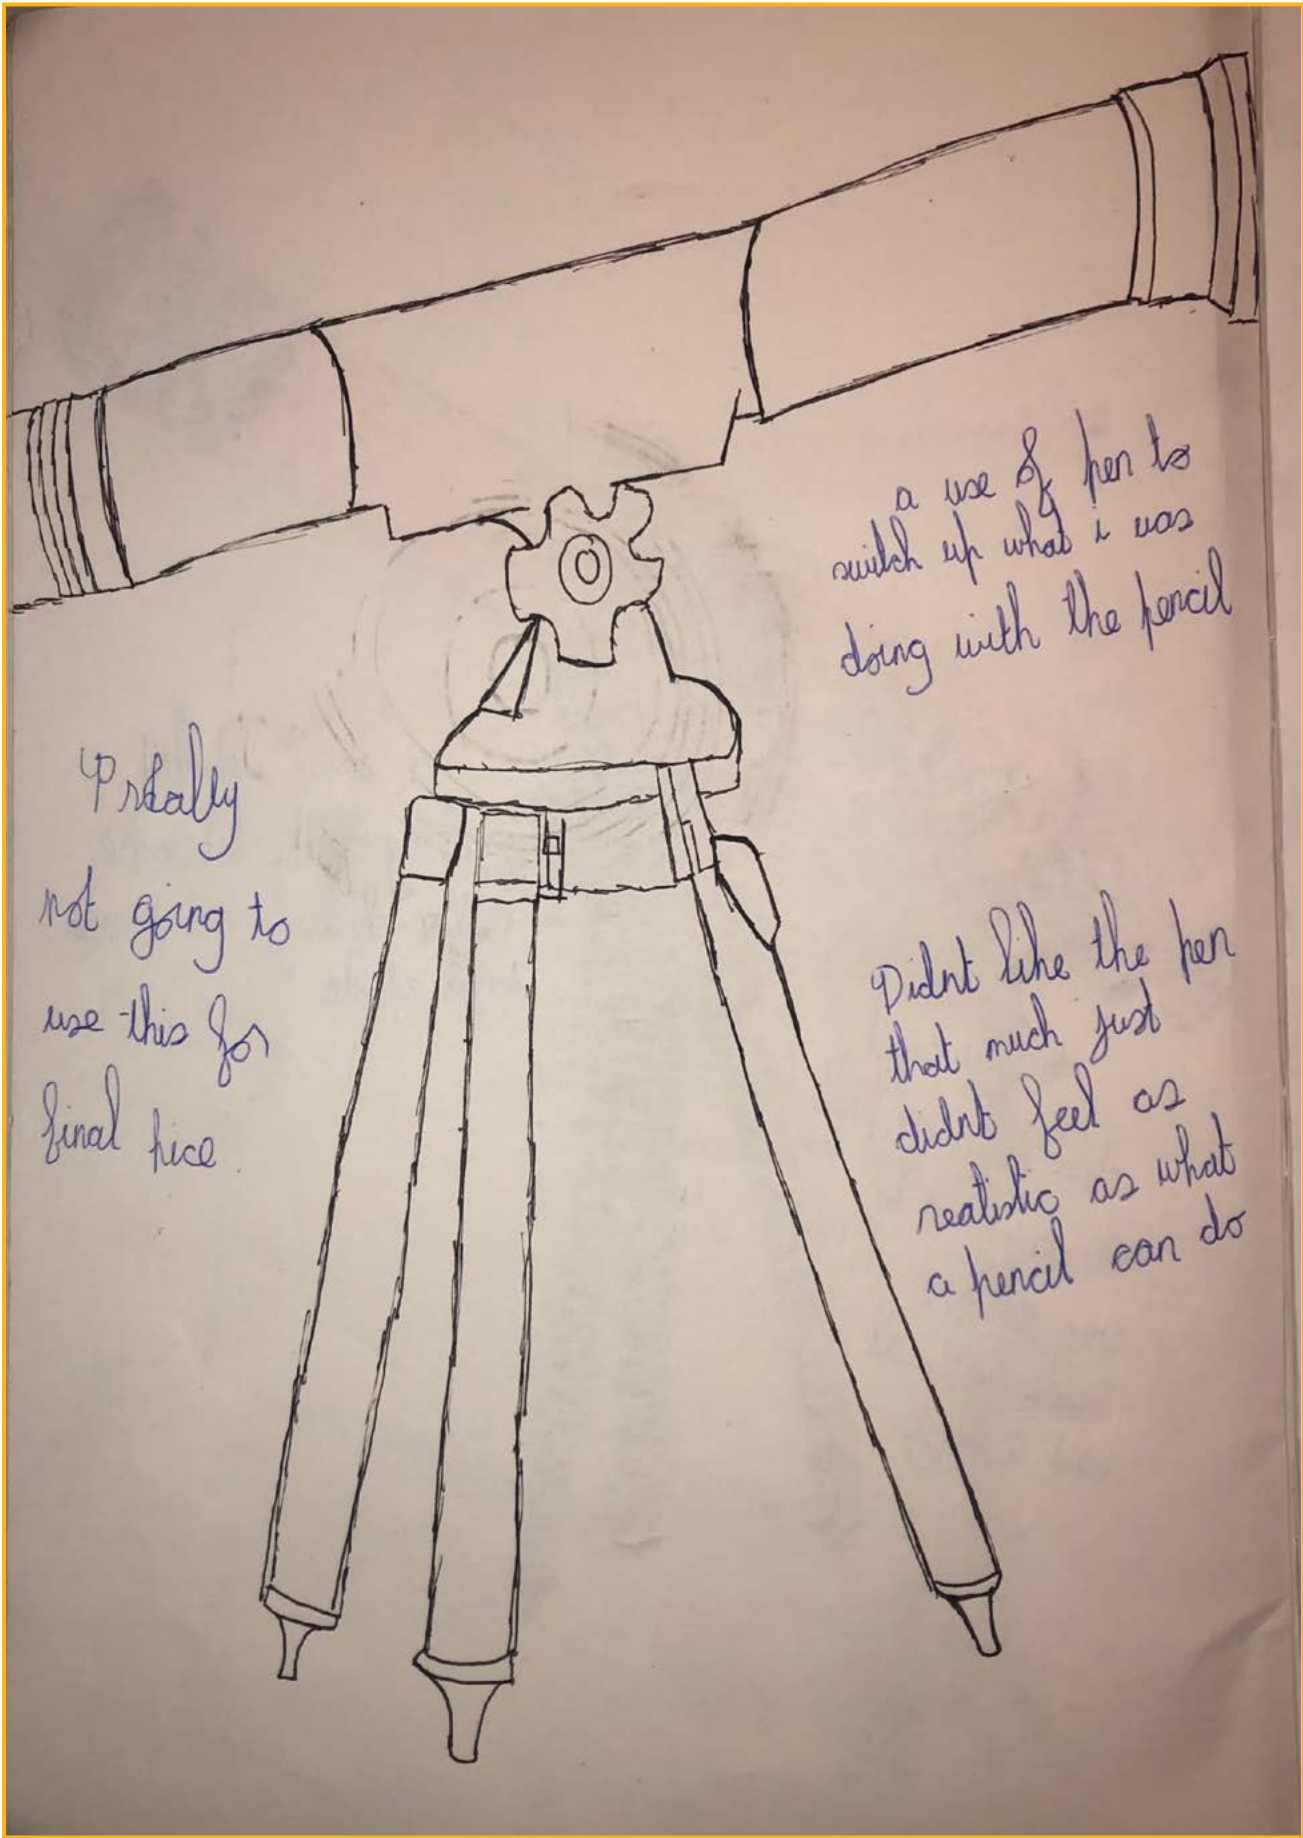 a use of pen to
switch up what i was
doing with the pencil
not going to
use this for
final pice.
Didnt like the pen
that much just
didnt feel as
realistic as what
a pencil can do